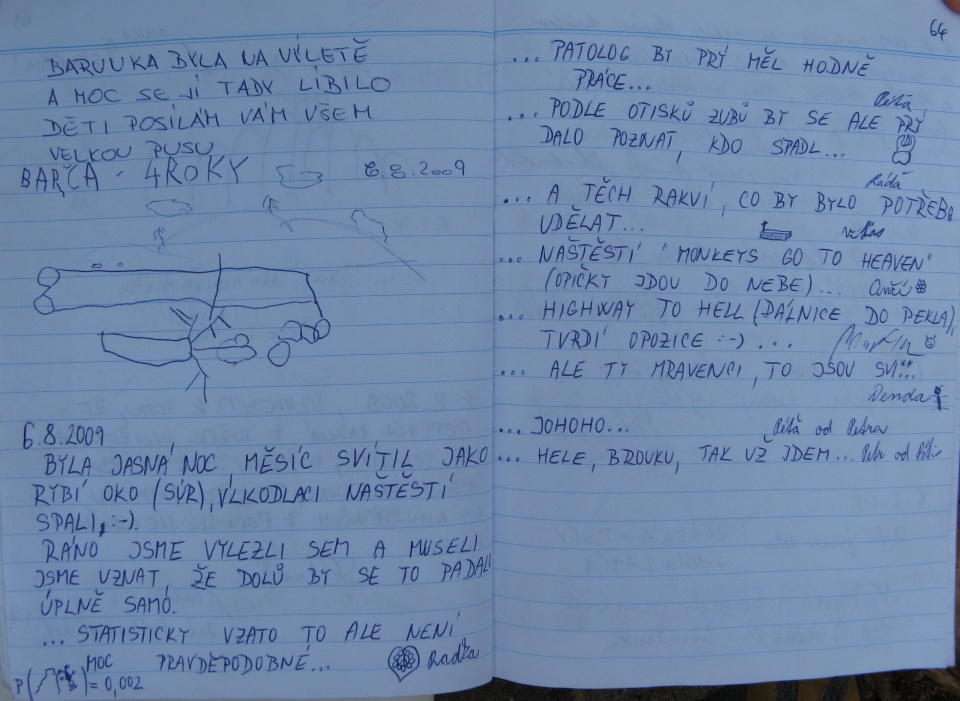 BARUUKA BYLA NA VÍLETĚ
A MOC SE JÍ TADY LÍBILO
DĚTI POSÍLÁM VÁM VŠEM
VELKOU PUSU
BARČA - 4 ROKY 6.8.2009
6.8.2009
BYLA JASNÁ NOC, MĚSÍC SVÍTIL JAKO
RYBÍ OKO (SÝR), VLKODLACI NAŠTĚSTÍ
SPALI, :-).
RÁNO JSME VYLEZLI SEM A MUSELI
JSME UZNAT, ŽE DOLŮ BY SE TO PADALO
ÚPLNĚ SAMO.
... STATISTICKY VZATO TO ALE NENÍ
MOC PRAVDĚPODOBNÉ... Radka
P( )= 0,002
64
... PATOLOG BY PRÝ MĚL HODNĚ
PRÁCE...
... PODLE OTISKŮ ZUBŮ BY SE ALE PRÝ
DALO POZNAT, KDO SPADL...
... A TĚCH RAKVÍ, CO BY BYLO POTŘEBA
UDĚLAT...
... NAŠTĚSTÍ "MONKEYS GO TO HEAVEN"
(OPIČKY JDOU DO NEBE)...
... HIGHWAY TO HELL (DÁLNICE DO PEKLA),
TVRDÍ OPOZICE :-) ... Martin
... ALE TY MRAVENCI, TO JSOU SVI**...
Denda
... JOHOHO... Péťa od Petra
... HELE, BROUKU, TAK UŽ JDEM... Petr od Péti